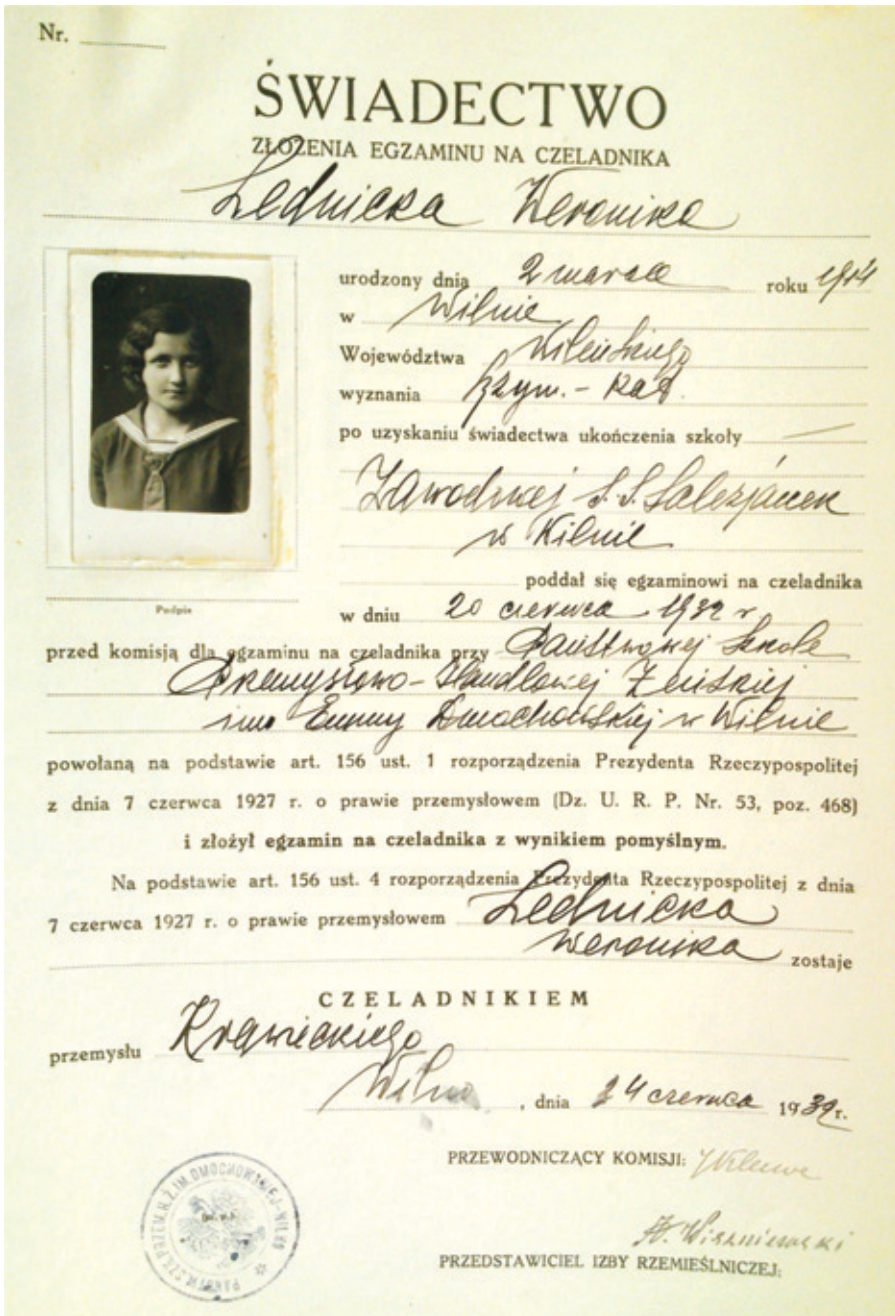 Nr.
ŚWIADECTWO
ZŁOŻENIA EGZAMINU NA CZELADNIKA
Lednicka Weronika
urodzony dnia 2 marca roku 1914
w Wilnie
Województwa Wileńskiego
wyznania Rzym.-kat.
po uzyskaniu świadectwa ukończenia szkoły
Zawodowej S.S. Salezjanek
w Wilnie
poddał się egzaminowi na czeladnika
Podpis
w dniu 20 czerwca 1932 r
przed komisją dla egzaminu na czeladnika przy Państwowej Szkole
Przemysłowo-Handlowej Żeńskiej
im. Emmy Dmochowskiej w Wilnie
powołaną na podstawie art. 156 ust. 1 rozporządzenia Prezydenta Rzeczypospolitej
z dnia 7 czerwca 1927 r. o prawie przemysłowem (Dz. U. R. P. Nr. 53, poz. 468)
i złożył egzamin na czeladnika z wynikiem pomyślnym.
Na podstawie art. 156 ust. 4 rozporządzenia Prezydenta Rzeczypospolitej z dnia
7 czerwca 1927 r. o prawie przemysłowem Lednicka
Weronika zostaje
CZELADNIKIEM
przemysłu Krawieckiego
Wilno, dnia 24 czerwca 1932 r.
PRZEWODNICZĄCY KOMISJI:
A. Wiszniewski
PRZEDSTAWICIEL IZBY RZEMIEŚLNICZEJ:
IM. DMOCHOWSKIEJ